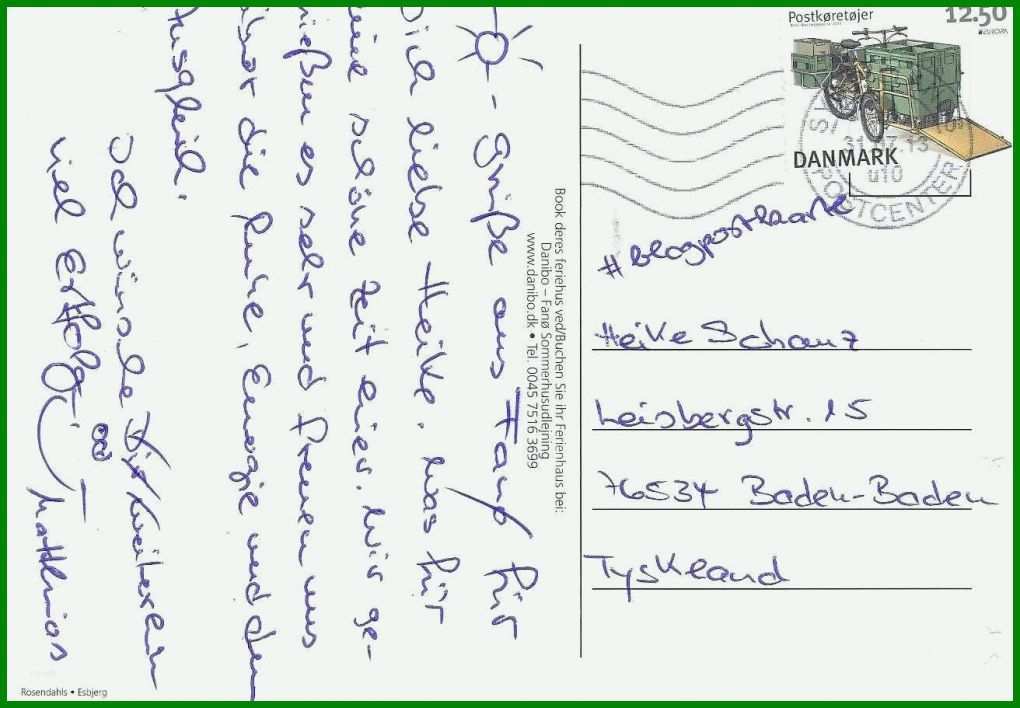 - Grüße aus Fanø für
Dich liebe Heike. Was für
eine schöne Zeit hier. Wir ge-
nießen es sehr und freuen uns
die Ruhe, Energie und den
Ausgleich.
Ich wünsche Dir weiterhin
viel Erfolg! Matthias
Book deres feriehus ved/Buchen Sie ihr Ferienhaus bei:
Danibo – Fanø Sommerhusudlejning
www.danibo.dk • Tel. 0045 7516 3699
Postkøretøjer
12.50
EUROPA
DANMARK
31.07.13
u10
POSTCENTER
#blogpostkarte
Heike Schanz
Leisbergstr. 15
76534 Baden-Baden
Tyskland
Rosendahls • Esbjerg